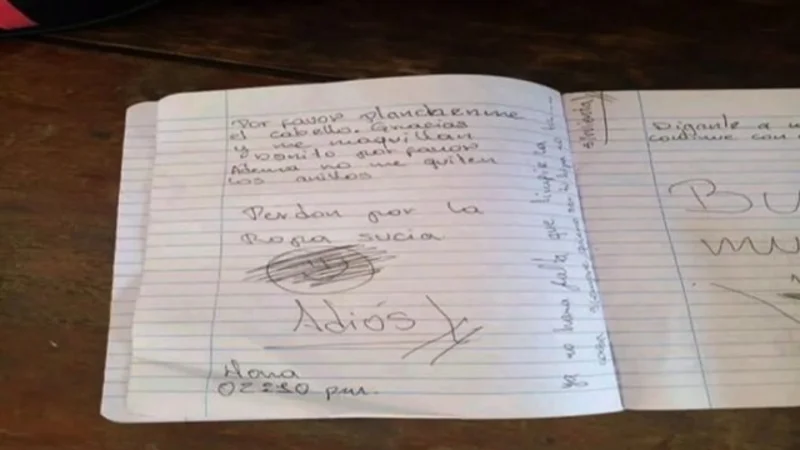 Por favor Planchenme
el cabello. Gracias
y me maquillan
Bonito por favor
Ademas no me quiten
los anillos
Perdon por la
Ropa sucia
Adiós
Hora
02:10 pm.
ya no hara falta que limpie la
siempre
Digante a
continue con
BU
mu